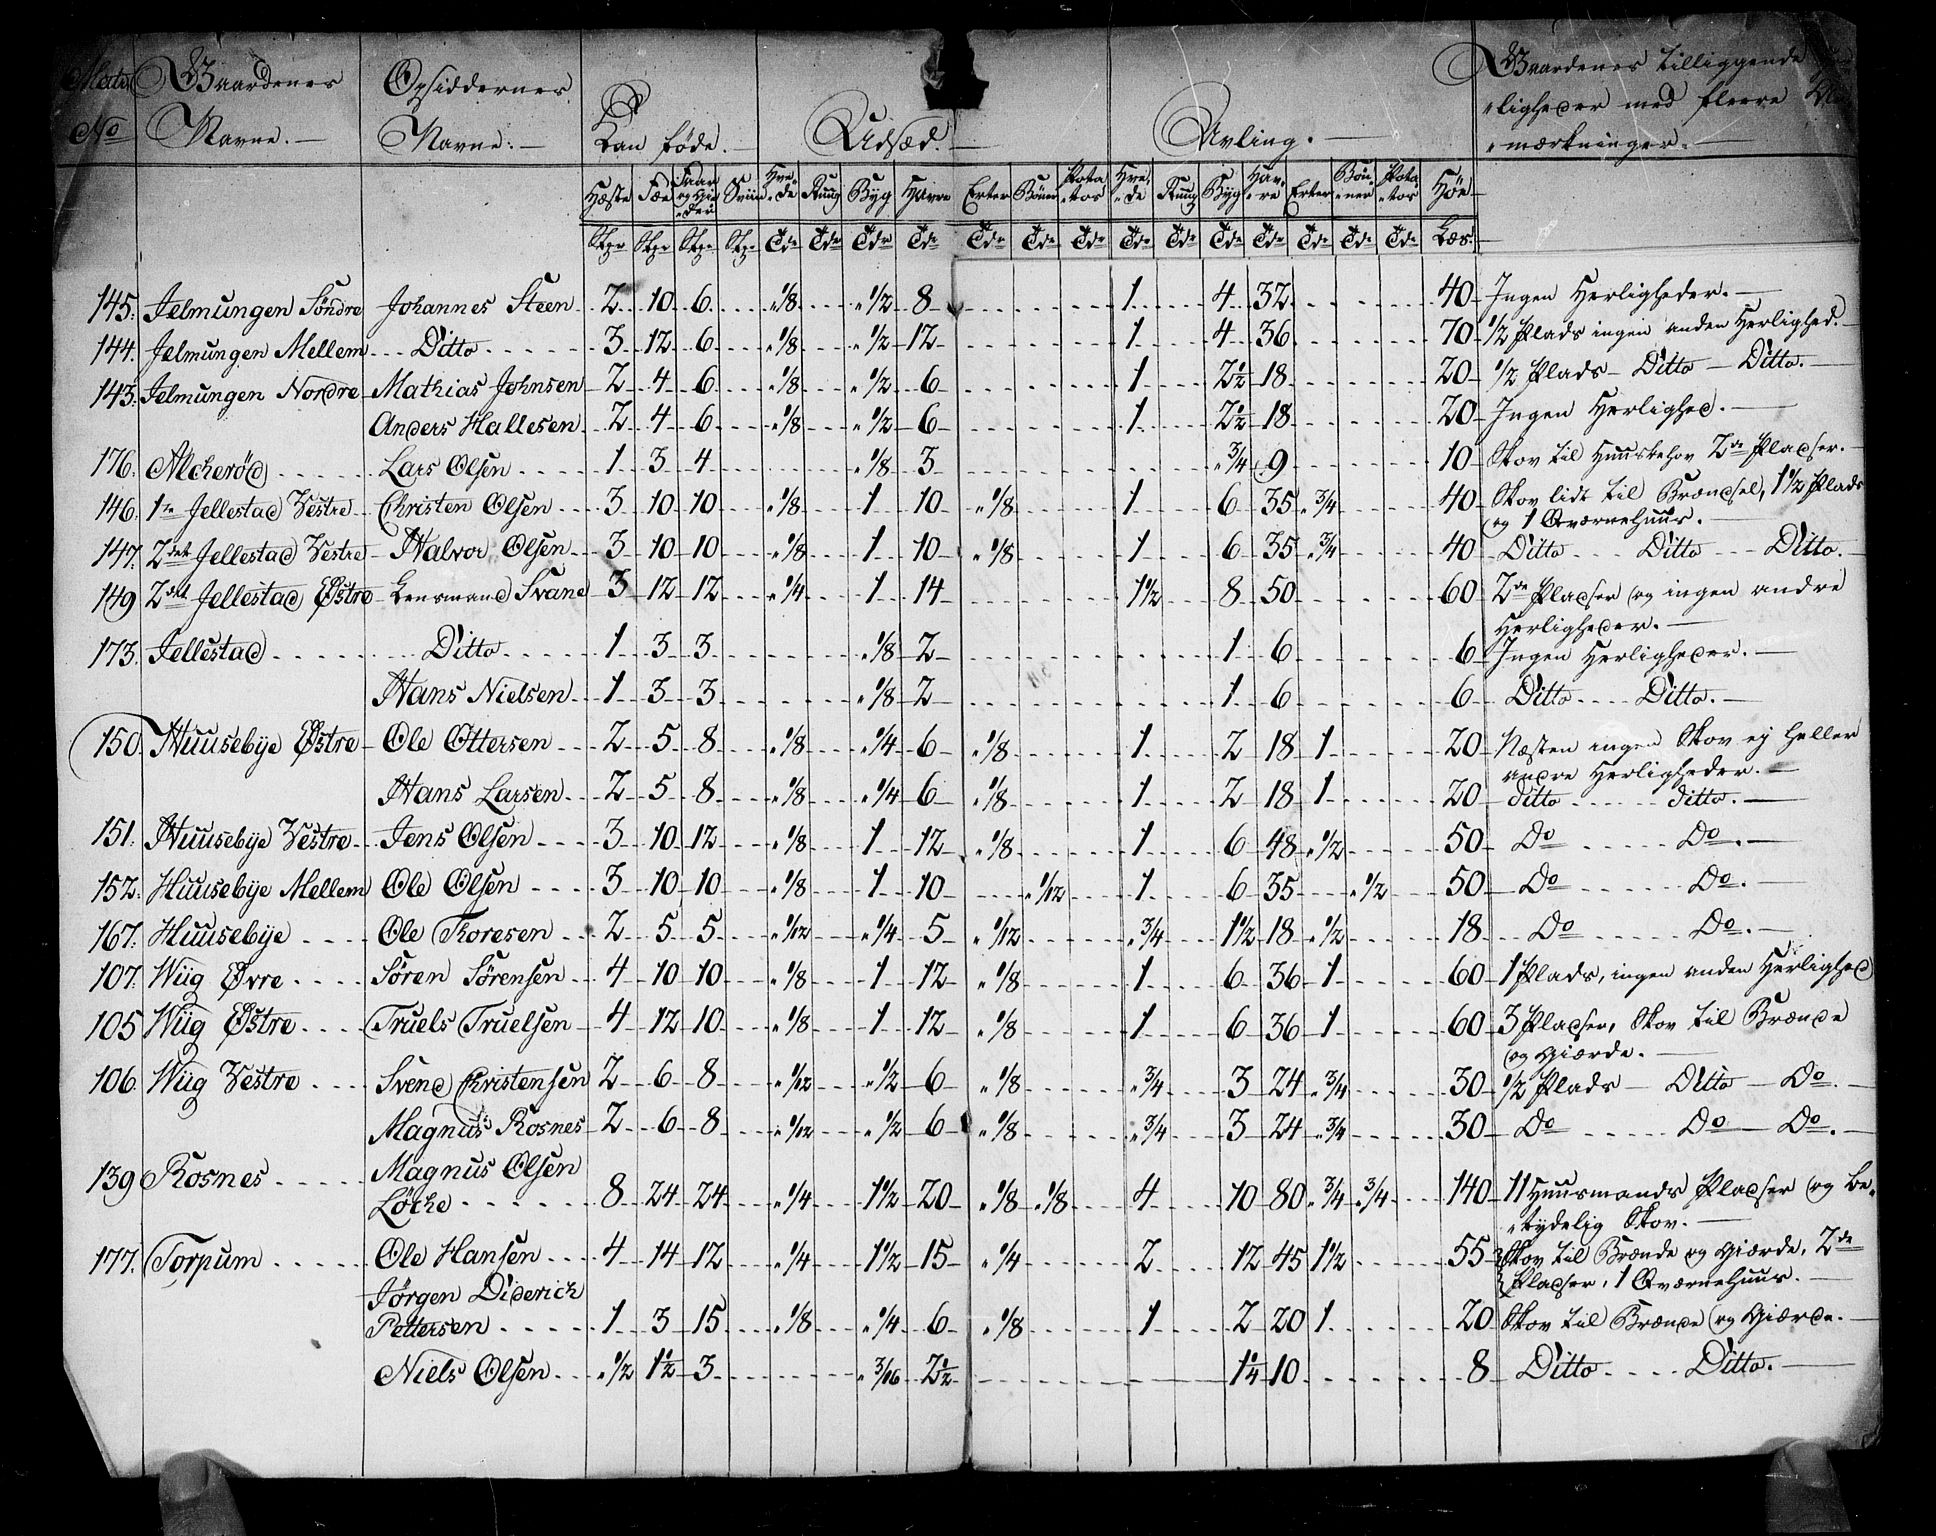 No Gaardenes Navne. Opsiddernes Navne. Kan føde. Udsæd. Avling. Gaardenes tilliggende
ligheder med fleere
mærkninger.
Hæste Fæe Faar og Gieder Sviin Hvede Ruug Byg Havre Erter Bønner Potatos Hvede Ruug Byg Havre Erter Bønner Potatos Høe
Stkr Stkr Stkr Stkr Tdr Tdr Tdr Tdr Tdr Tdr Tdr Tdr Tdr Tdr Tdr Tdr Tdr Tdr Læs.
145. Jelmungen Söndre Johannes Steen 2 10 6 1/8 1/2 8 1 4 32 40 Ingen Herligheder.
144. Jelmungen Mellem Ditto 3 12 6 1/8 1/2 12 1 4 36 70 1/2 Plads ingen anden Herlighed.
143. Jelmungen Nordre Mathias Johnsen 2 4 6 1/8 1/2 6 1 2 1/2 18 20 1/2 Plads Ditto Ditto.
Anders Hallesen 2 4 6 1/8 1/2 6 1 2 1/2 18 20 Ingen Herlighed.
176. Alcheröd Lars Olsen 1 3 4 1/8 3 3/4 9 10 Skov til Huusbehov 2de Pladser.
146. 1te Jellestad Vestre Christen Olsen 3 10 10 1/8 1 10 1/8 1 6 35 3/4 40 Skov lidt til Brændsel, 1 1/2 Plads
og 1 Qværnehuus.
147. 2det Jellestad Vestre Halvor Olsen 3 10 10 1/8 1 10 1/8 1 6 35 3/4 40 Ditto Ditto Ditto.
149 2det Jellestad Østre Lensmand Svane 3 12 12 1/4 1 14 1 1/2 8 50 60 2de Pladser og ingen andre
Herligheder.
173. Jellestad Ditto 1 3 3 1/8 2 1 6 6 Ingen Herligheder.
Hans Nielsen 1 3 3 1/8 2 1 6 6 Ditto Ditto.
150. Huusebÿe Østre Ole Ottersen 2 5 8 1/8 1/4 6 1/8 1 2 18 1 20 Næsten ingen Skov ej heller
andre Herligheder.
Hans Larsen 2 5 8 1/8 1/4 6 1/8 1 2 18 1 20 ditto ditto.
151. Huusebÿe Vestre Jens Olsen 3 10 12 1/8 1 12 1/8 1 6 48 1/2 50 Do Do.
152. Huusebÿe Mellem Ole Olsen 3 10 10 1/8 1 10 1/12 1 6 35 1/2 50 Do Do.
167. Huusebÿe Ole Thoresen 2 5 5 1/12 1/4 5 1/12 3/4 1 1/2 18 1/2 18 Do Do.
107. Wiig Øvre Sören Sörensen 4 10 10 1/8 1 12 1/8 1 6 36 1 60 1 Plads, ingen anden Herlighed
105 Wiig Østre Truels Truelsen 4 12 10 1/8 1 12 1/8 1 6 36 1 60 3 Pladser, Skov til Brænde
og Giærde.
106. Wiig Vestre Svend Christensen 2 6 8 1/12 1/2 6 1/8 3/4 3 24 3/4 30 1/2 Plads Ditto Do.
Magnus Rosnes 2 6 8 1/12 1/2 6 1/8 3/4 3 24 3/4 30 Do Do Do.
139 Rosnes Magnus Olsen
Löcke 8 24 24 1/4 1 1/2 20 1/8 1/8 4 10 80 3/4 3/4 140 11 Huusmands Pladser og be
tydelig Skov.
177. Torpum Ole Hansen 4 14 12 1/4 1 1/2 15 1/4 2 12 45 1 1/2 55 Skov til Brænde og Giærde, 2de
Pladser, 1 Qværnehuus.
Jörgen Diderich
Pettersen 1 3 15 1/8 1/4 6 1/8 1 2 20 1 20 Skov til Brænde og Giærde.
Niels Olsen 1/2 1 1/2 3 3/16 2 1/2 1 1/4 10 8 Ditto Ditto.